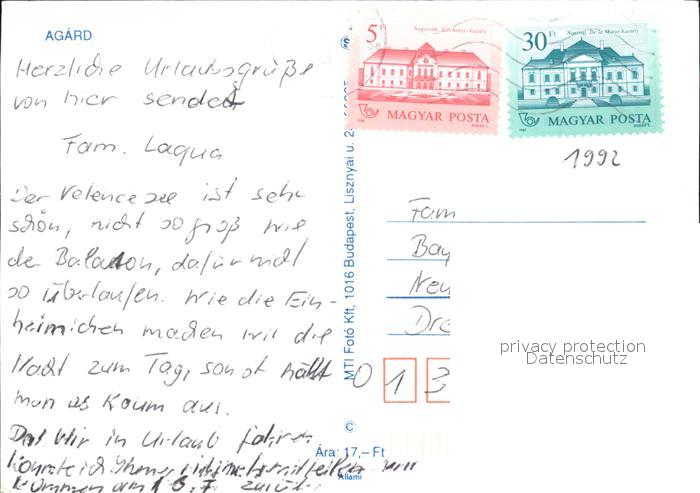 AGÁRD
Herzliche Urlaubsgrüße
von hier sendet
Fam. Laqua
Der Velencesee ist sehr
schön, nicht so groß wie
der Balaton, dafür nicht
so überlaufen. Wie die Ein-
heimischen machen wir die
Nacht zum Tag, sonst hält
man es kaum aus.
Daß wir in Urlaub fahren
konnte ich Ihnen nicht mitteilen wir
kommen am 18.7. zurück.
5 Ft
Nagycenk, Széchenyi-kastély
MAGYAR POSTA
30 Ft
De la Motte-kastély
MAGYAR POSTA
1992
MTI Fotó Kft, 1016 Budapest, Lisznyai u. 2
Fam
Bay
Neu
Dre
0 1 3
privacy protection
Datenschutz
C
Ára: 17,– Ft
Állami